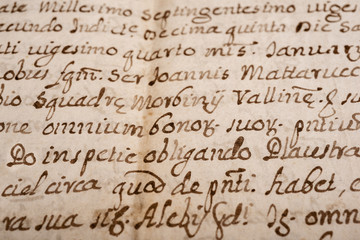 ate Millesimo Septingentesimo viges
ecundo Indicte Decima quinta Die Sa
ati vigesimo quarto mis: Januarij
obius sqm: Ser Joannis Mattarucc
bio Squadrę Morbinij Vallinę: & su
one omnium bonoꝝ suoꝝ pntiu
Po in spetie obligando Plaustra
ciel circa quod de pnti. habet, o
ra sua omn